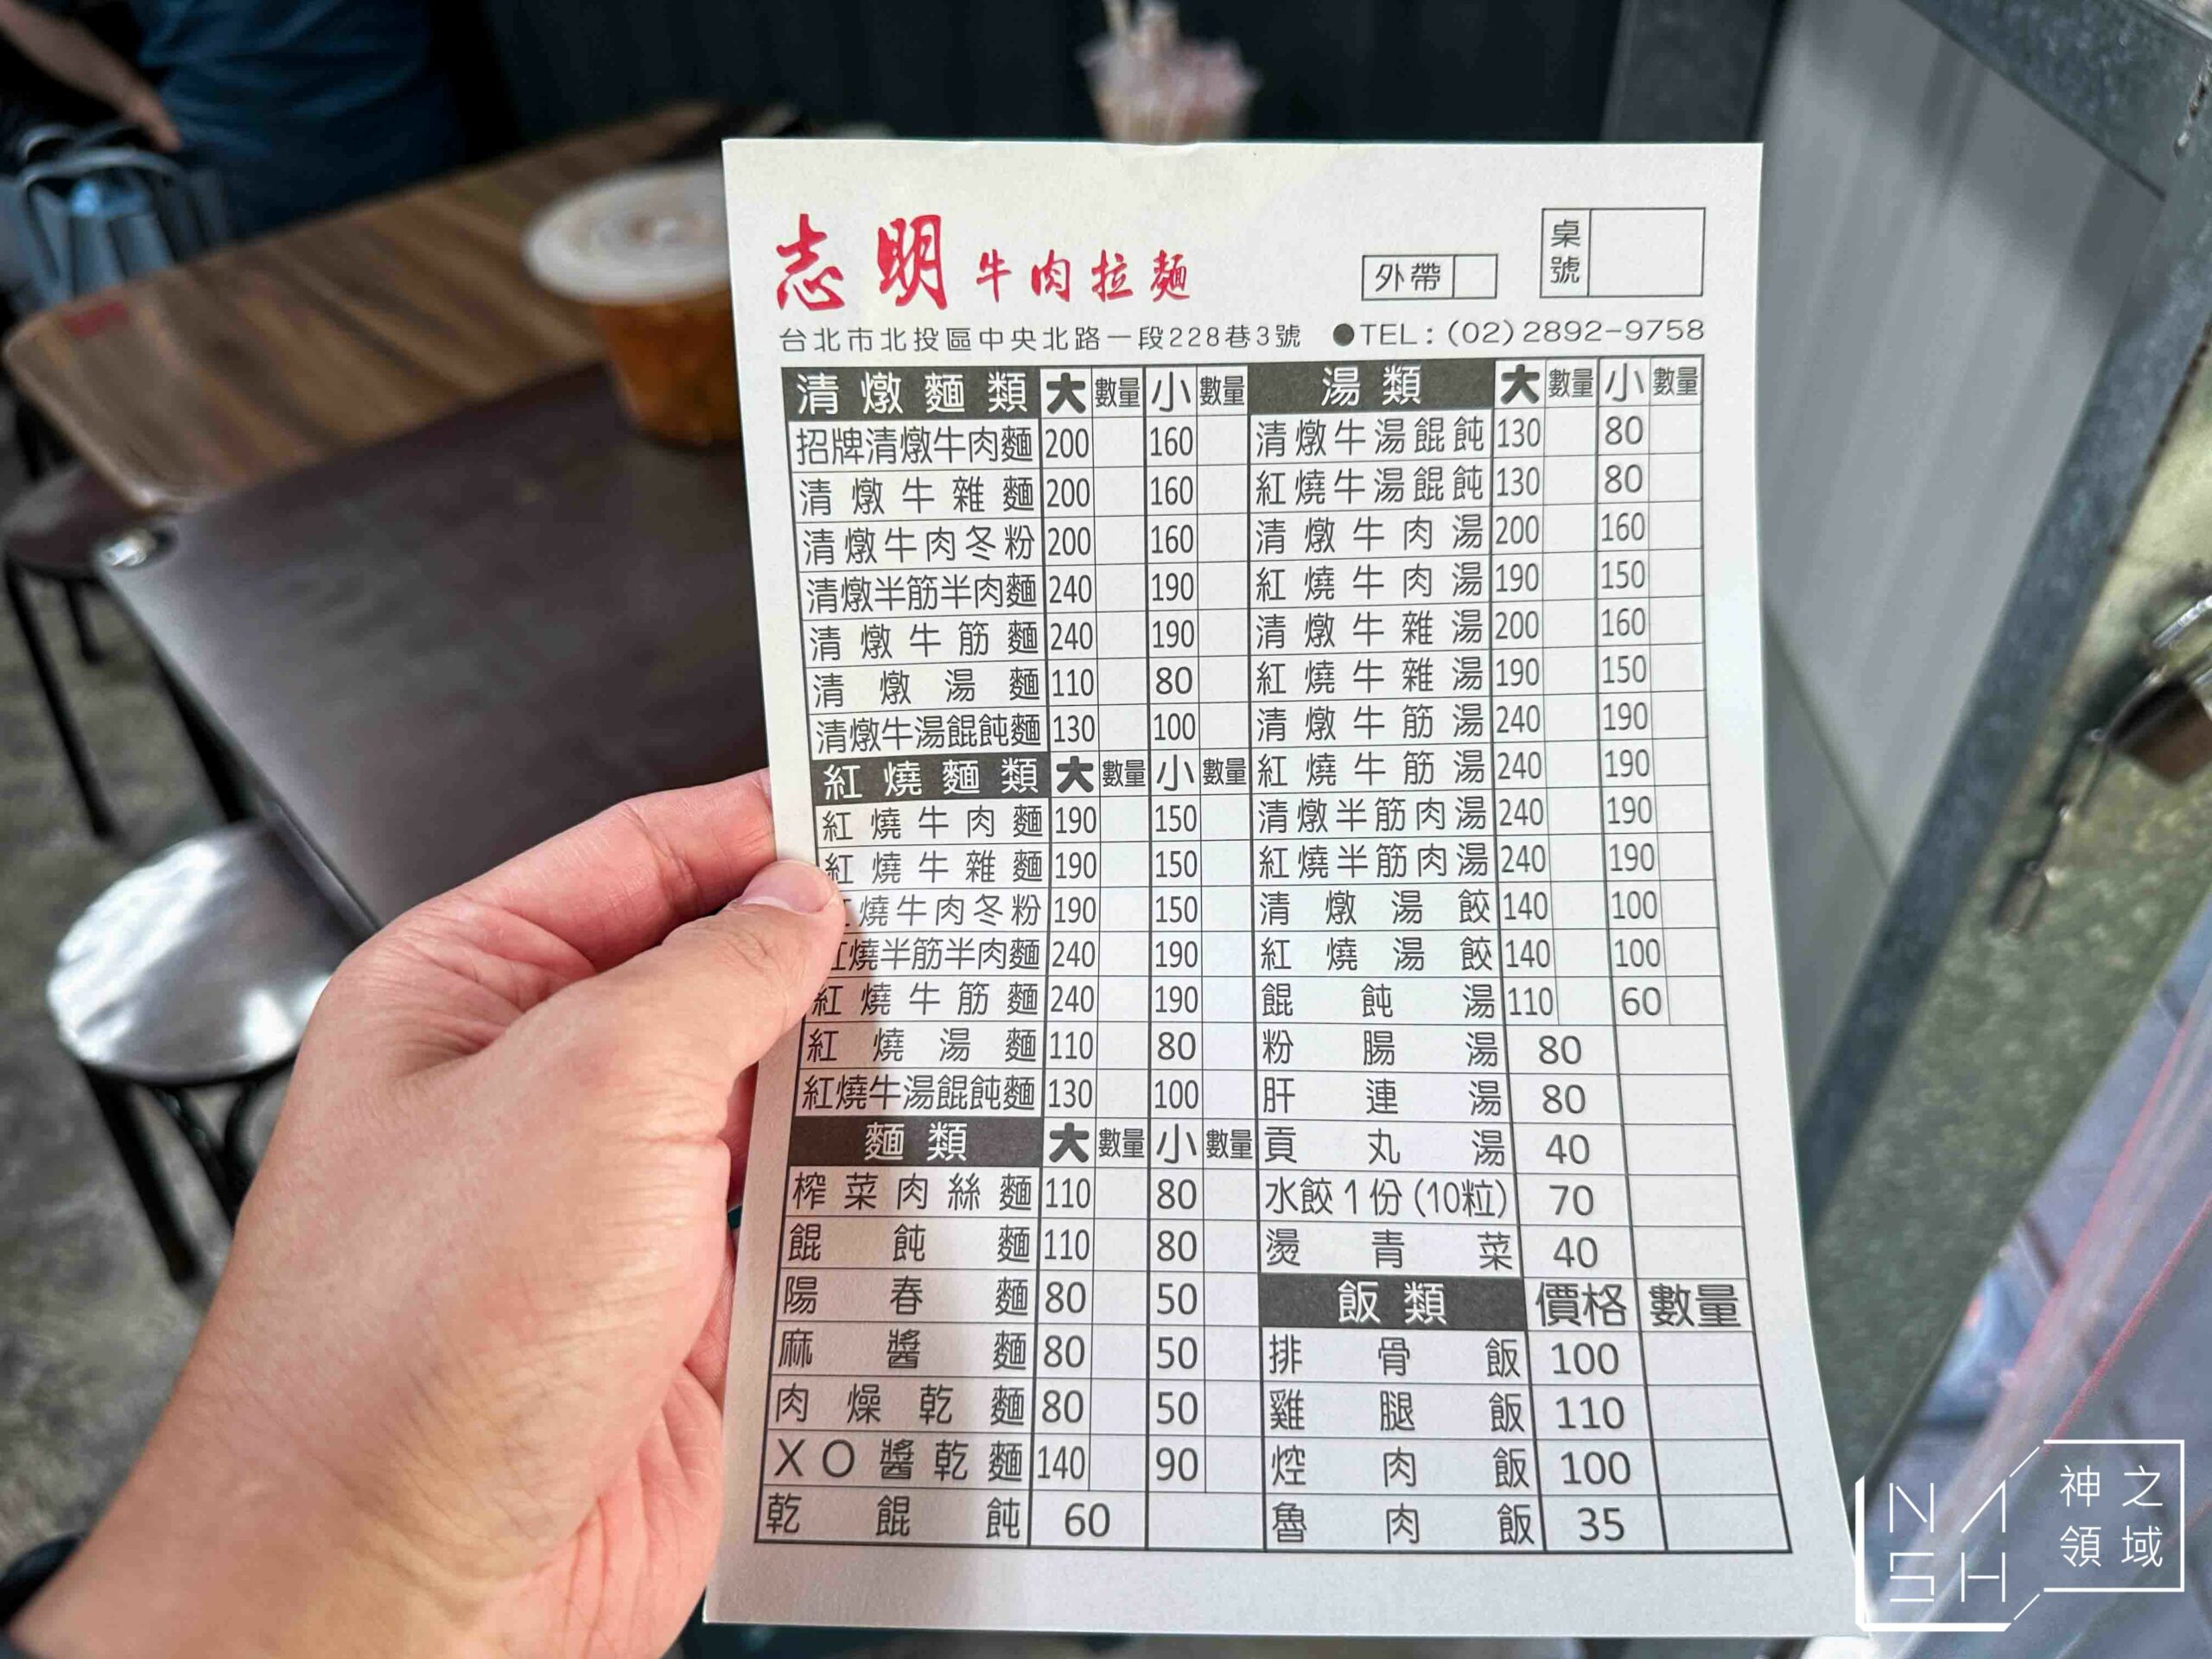 志明牛肉拉麵
外帶
桌號
台北市北投區中央北路一段228巷3號 ●TEL:(02)2892-9758
清燉麵類 大 數量 小 數量
招牌清燉牛肉麵 200 160
清燉牛雜麵 200 160
清燉牛肉冬粉 200 160
清燉半筋半肉麵 240 190
清燉牛筋麵 240 190
清燉湯麵 110 80
清燉牛湯餛飩麵 130 100
紅燒麵類 大 數量 小 數量
紅燒牛肉麵 190 150
紅燒牛雜麵 190 150
紅燒牛肉冬粉 190 150
紅燒半筋半肉麵 240 190
紅燒牛筋麵 240 190
紅燒湯麵 110 80
紅燒牛湯餛飩麵 130 100
麵類 大 數量 小 數量
榨菜肉絲麵 110 80
餛飩麵 110 80
陽春麵 80 50
麻醬麵 80 50
肉燥乾麵 80 50
XO醬乾麵 140 90
乾餛飩 60
湯類 大 數量 小 數量
清燉牛湯餛飩 130 80
紅燒牛湯餛飩 130 80
清燉牛肉湯 200 160
紅燒牛肉湯 190 150
清燉牛雜湯 200 160
紅燒牛雜湯 190 150
清燉牛筋湯 240 190
紅燒牛筋湯 240 190
清燉半筋肉湯 240 190
紅燒半筋肉湯 240 190
清燉湯餃 140 100
紅燒湯餃 140 100
餛飩湯 110 60
粉腸湯 80
肝連湯 80
貢丸湯 40
水餃1份(10粒) 70
燙青菜 40
飯類 價格 數量
排骨飯 100
雞腿飯 110
焢肉飯 100
魯肉飯 35
NASH
神之領域